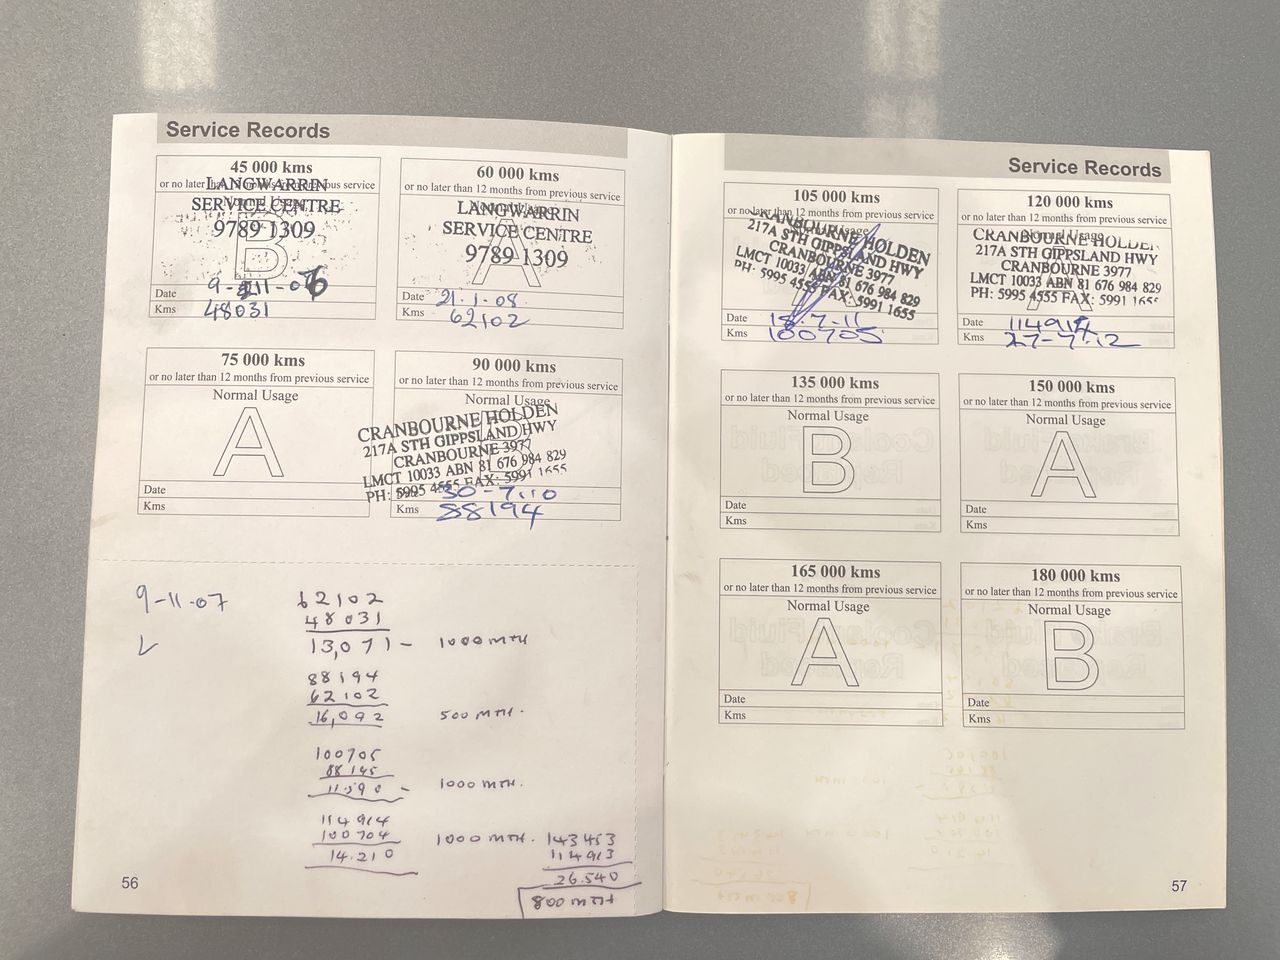 Service Records
45 000 kms
or no later than 12 months from previous service
Normal Usage
LANGWARRIN
SERVICE CENTRE
9789 1309
B
Date 9-11-07
Kms 48031
60 000 kms
or no later than 12 months from previous service
Normal Usage
LANGWARRIN
SERVICE CENTRE
9789 1309
A
Date 21.1.08
Kms 62102
75 000 kms
or no later than 12 months from previous service
Normal Usage
A
Date
Kms
90 000 kms
or no later than 12 months from previous service
Normal Usage
CRANBOURNE HOLDEN
217A STH GIPPSLAND HWY
CRANBOURNE 3977
LMCT 10033 ABN 81 676 984 829
PH: 5995 4555 FAX: 5991 1655
Date 30-7.10
Kms 88194
9-11-07
62102
48031
13,071 - 1000 MTH
88194
62102
16,092 500 MTH.
100705
11.590 - 1000 MTH.
114914
100704 1000 MTH.
14.210
143453
114913
26.540
800 MTH
56
Service Records
105 000 kms
or no later than 12 months from previous service
Normal Usage
CRANBOURNE HOLDEN
217A STH GIPPSLAND HWY
CRANBOURNE 3977
LMCT 10033 ABN 81 676 984 829
PH: 5995 4555 FAX: 5991 1655
Date 18.7.11
Kms 100705
120 000 kms
or no later than 12 months from previous service
Normal Usage
CRANBOURNE HOLDEN
217A STH GIPPSLAND HWY
CRANBOURNE 3977
LMCT 10033 ABN 81 676 984 829
PH: 5995 4555 FAX: 5991 1655
A
Date 114914
Kms 27-7.12
135 000 kms
or no later than 12 months from previous service
Normal Usage
B
Date
Kms
150 000 kms
or no later than 12 months from previous service
Normal Usage
A
Date
Kms
165 000 kms
or no later than 12 months from previous service
Normal Usage
A
Date
Kms
180 000 kms
or no later than 12 months from previous service
Normal Usage
B
Date
Kms
57